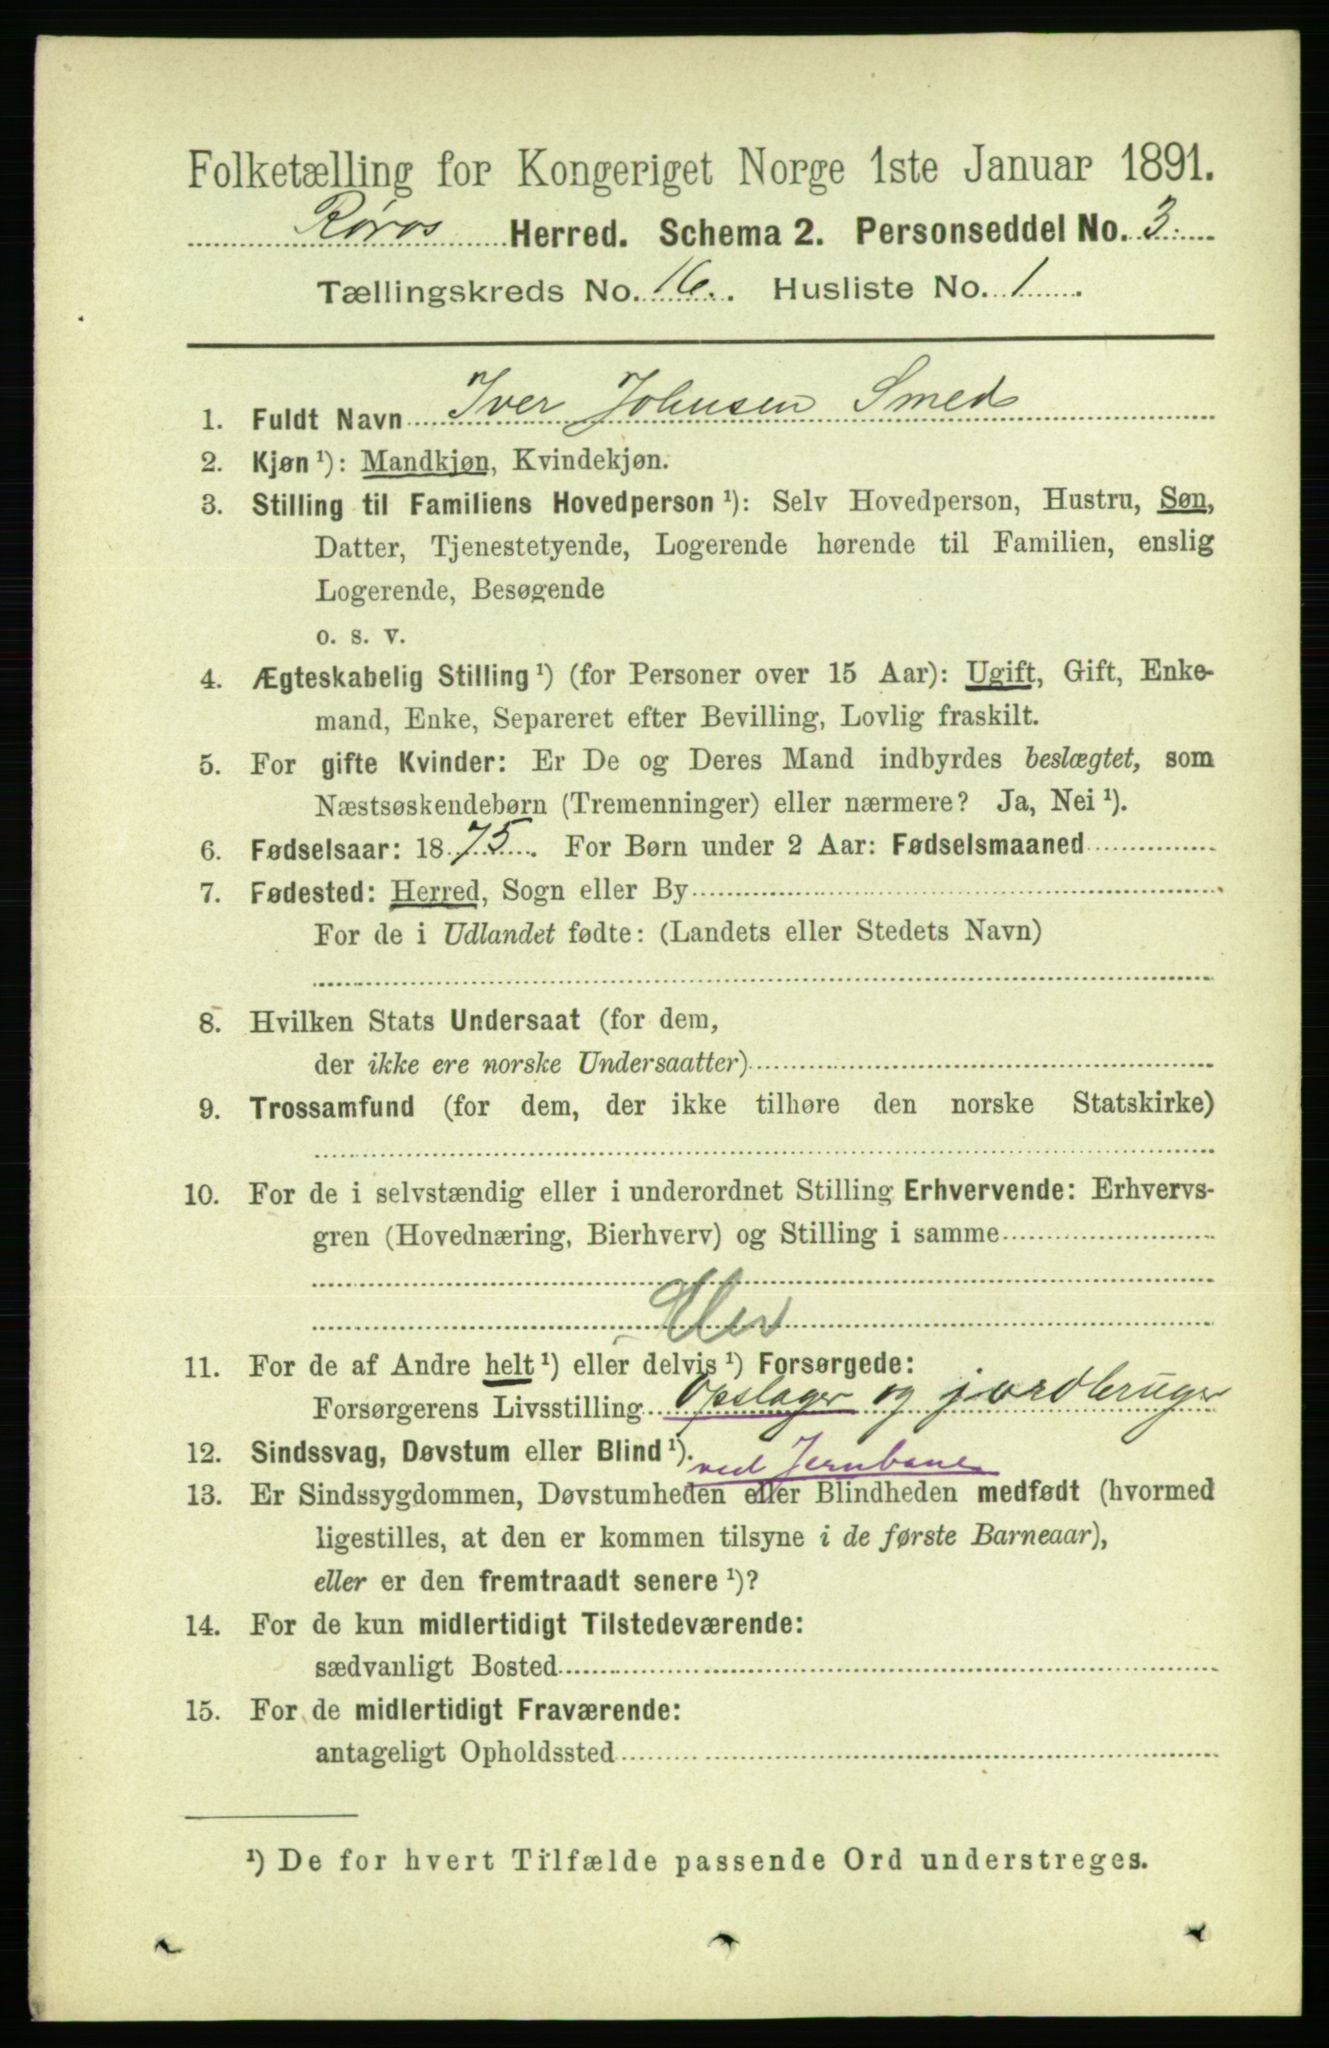 Folketælling for Kongeriget Norge 1ste Januar 1891.
Røros Herred. Schema 2. Personseddel No. 3.
Tællingskreds No. 16. Husliste No. 1
1. Fuldt Navn Iver Johnsen Smed
2. Kjøn ¹): Mandkjøn, Kvindekjøn.
3. Stilling til Familiens Hovedperson ¹): Selv Hovedperson, Hustru, Søn,
Datter, Tjenestetyende, Logerende hørende til Familien, enslig
Logerende, Besøgende
o. s. v.
4. Ægteskabelig Stilling ¹) (for Personer over 15 Aar): Ugift, Gift, Enke-
mand, Enke, Separeret efter Bevilling, Lovlig fraskilt.
5. For gifte Kvinder: Er De og Deres Mand indbyrdes beslægtet, som
Næstsøskendebørn (Tremenninger) eller nærmere? Ja, Nei ¹).
6. Fødselsaar: 1875. For Børn under 2 Aar: Fødselsmaaned
7. Fødested: Herred, Sogn eller By
For de i Udlandet fødte: (Landets eller Stedets Navn)
8. Hvilken Stats Undersaat (for dem,
der ikke ere norske Undersaatter)
9. Trossamfund (for dem, der ikke tilhøre den norske Statskirke)
10. For de i selvstændig eller i underordnet Stilling Erhvervende: Erhvervs-
gren (Hovednæring, Bierhverv) og Stilling i samme
Elev
11. For de af Andre helt ¹) eller delvis ¹) Forsørgede:
Forsørgerens Livsstilling Opslager og jordbruger
12. Sindssvag, Døvstum eller Blind ¹).
ved Jernbane
13. Er Sindssygdommen, Døvstumheden eller Blindheden medfødt (hvormed
ligestilles, at den er kommen tilsyne i de første Barneaar),
eller er den fremtraadt senere ¹)?
14. For de kun midlertidigt Tilstedeværende:
sædvanligt Bosted
15. For de midlertidigt Fraværende:
antageligt Opholdssted
¹) De for hvert Tilfælde passende Ord understreges.